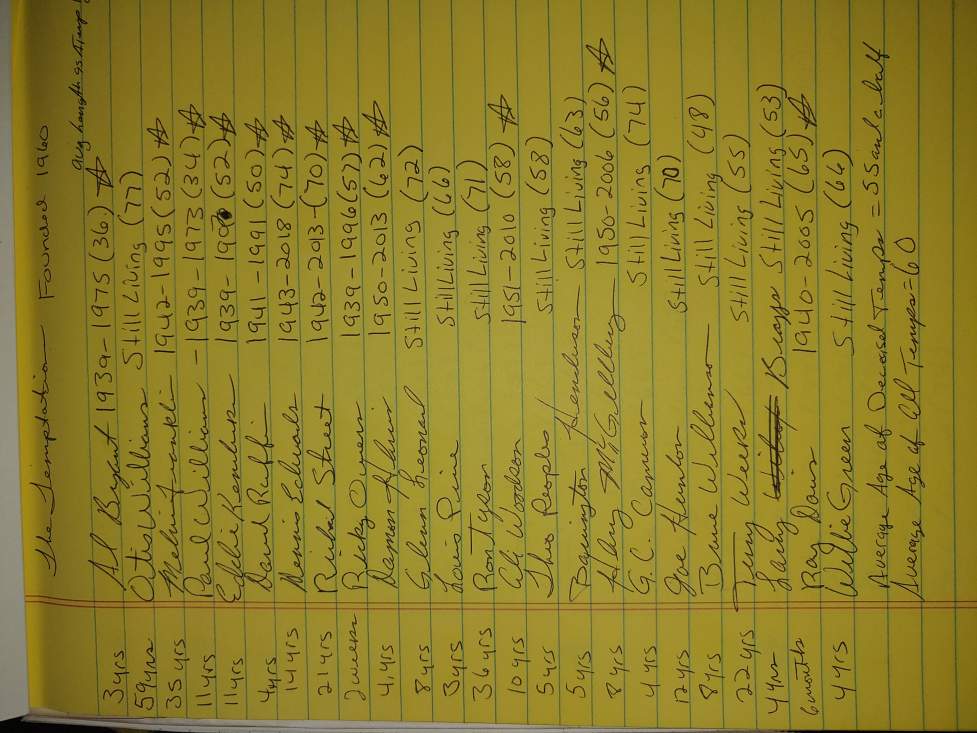 The Temptation Founded 1960
avg length as a Temp
3 yrs Al Bryant 1939-1975 (36) ☆
59 yrs Otis Williams Still Living (77)
35 yrs Melvin Franklin 1942-1995 (52) ☆
11 yrs Paul Williams - 1939-1973 (34) ☆
11 yrs Eddie Kendricks 1939-1990 (52) ☆
4 yrs David Ruffin 1941-1991 (50) ☆
14 yrs Dennis Edwards 1943-2018 (74) ☆
21 yrs Richard Street 1942-2013-(70) ☆
2 weeks Ricky Owens 1939-1996 (57) ☆
4 yrs Damon Harris 1950-2013 (62) ☆
8 yrs Glenn Leonard Still Living (72)
3 yrs Louis Price Still Living (66)
36 yrs Ron Tyson Still Living (71)
10 yrs Ali Woodson 1951-2010 (58) ☆
5 yrs Theo Peoples Still Living (58)
5 yrs Barrington Henderson - Still Living (63)
8 yrs Harry McGilberry - 1950-2006 (56) ☆
4 yrs G.C. Cameron Still Living (74)
12 yrs Joe Herndon Still Living (70)
8 yrs Bruce Williamson Still Living (48)
22 yrs Terry Weeks Still Living (55)
4 yrs Larry Braggs Still Living (53)
6 months Ray Davis 1940-2005 (65) ☆
4 yrs Willie Green Still Living (66)
Average Age of Deceased Temps = 55 and a half
Average Age of All Temps = 60